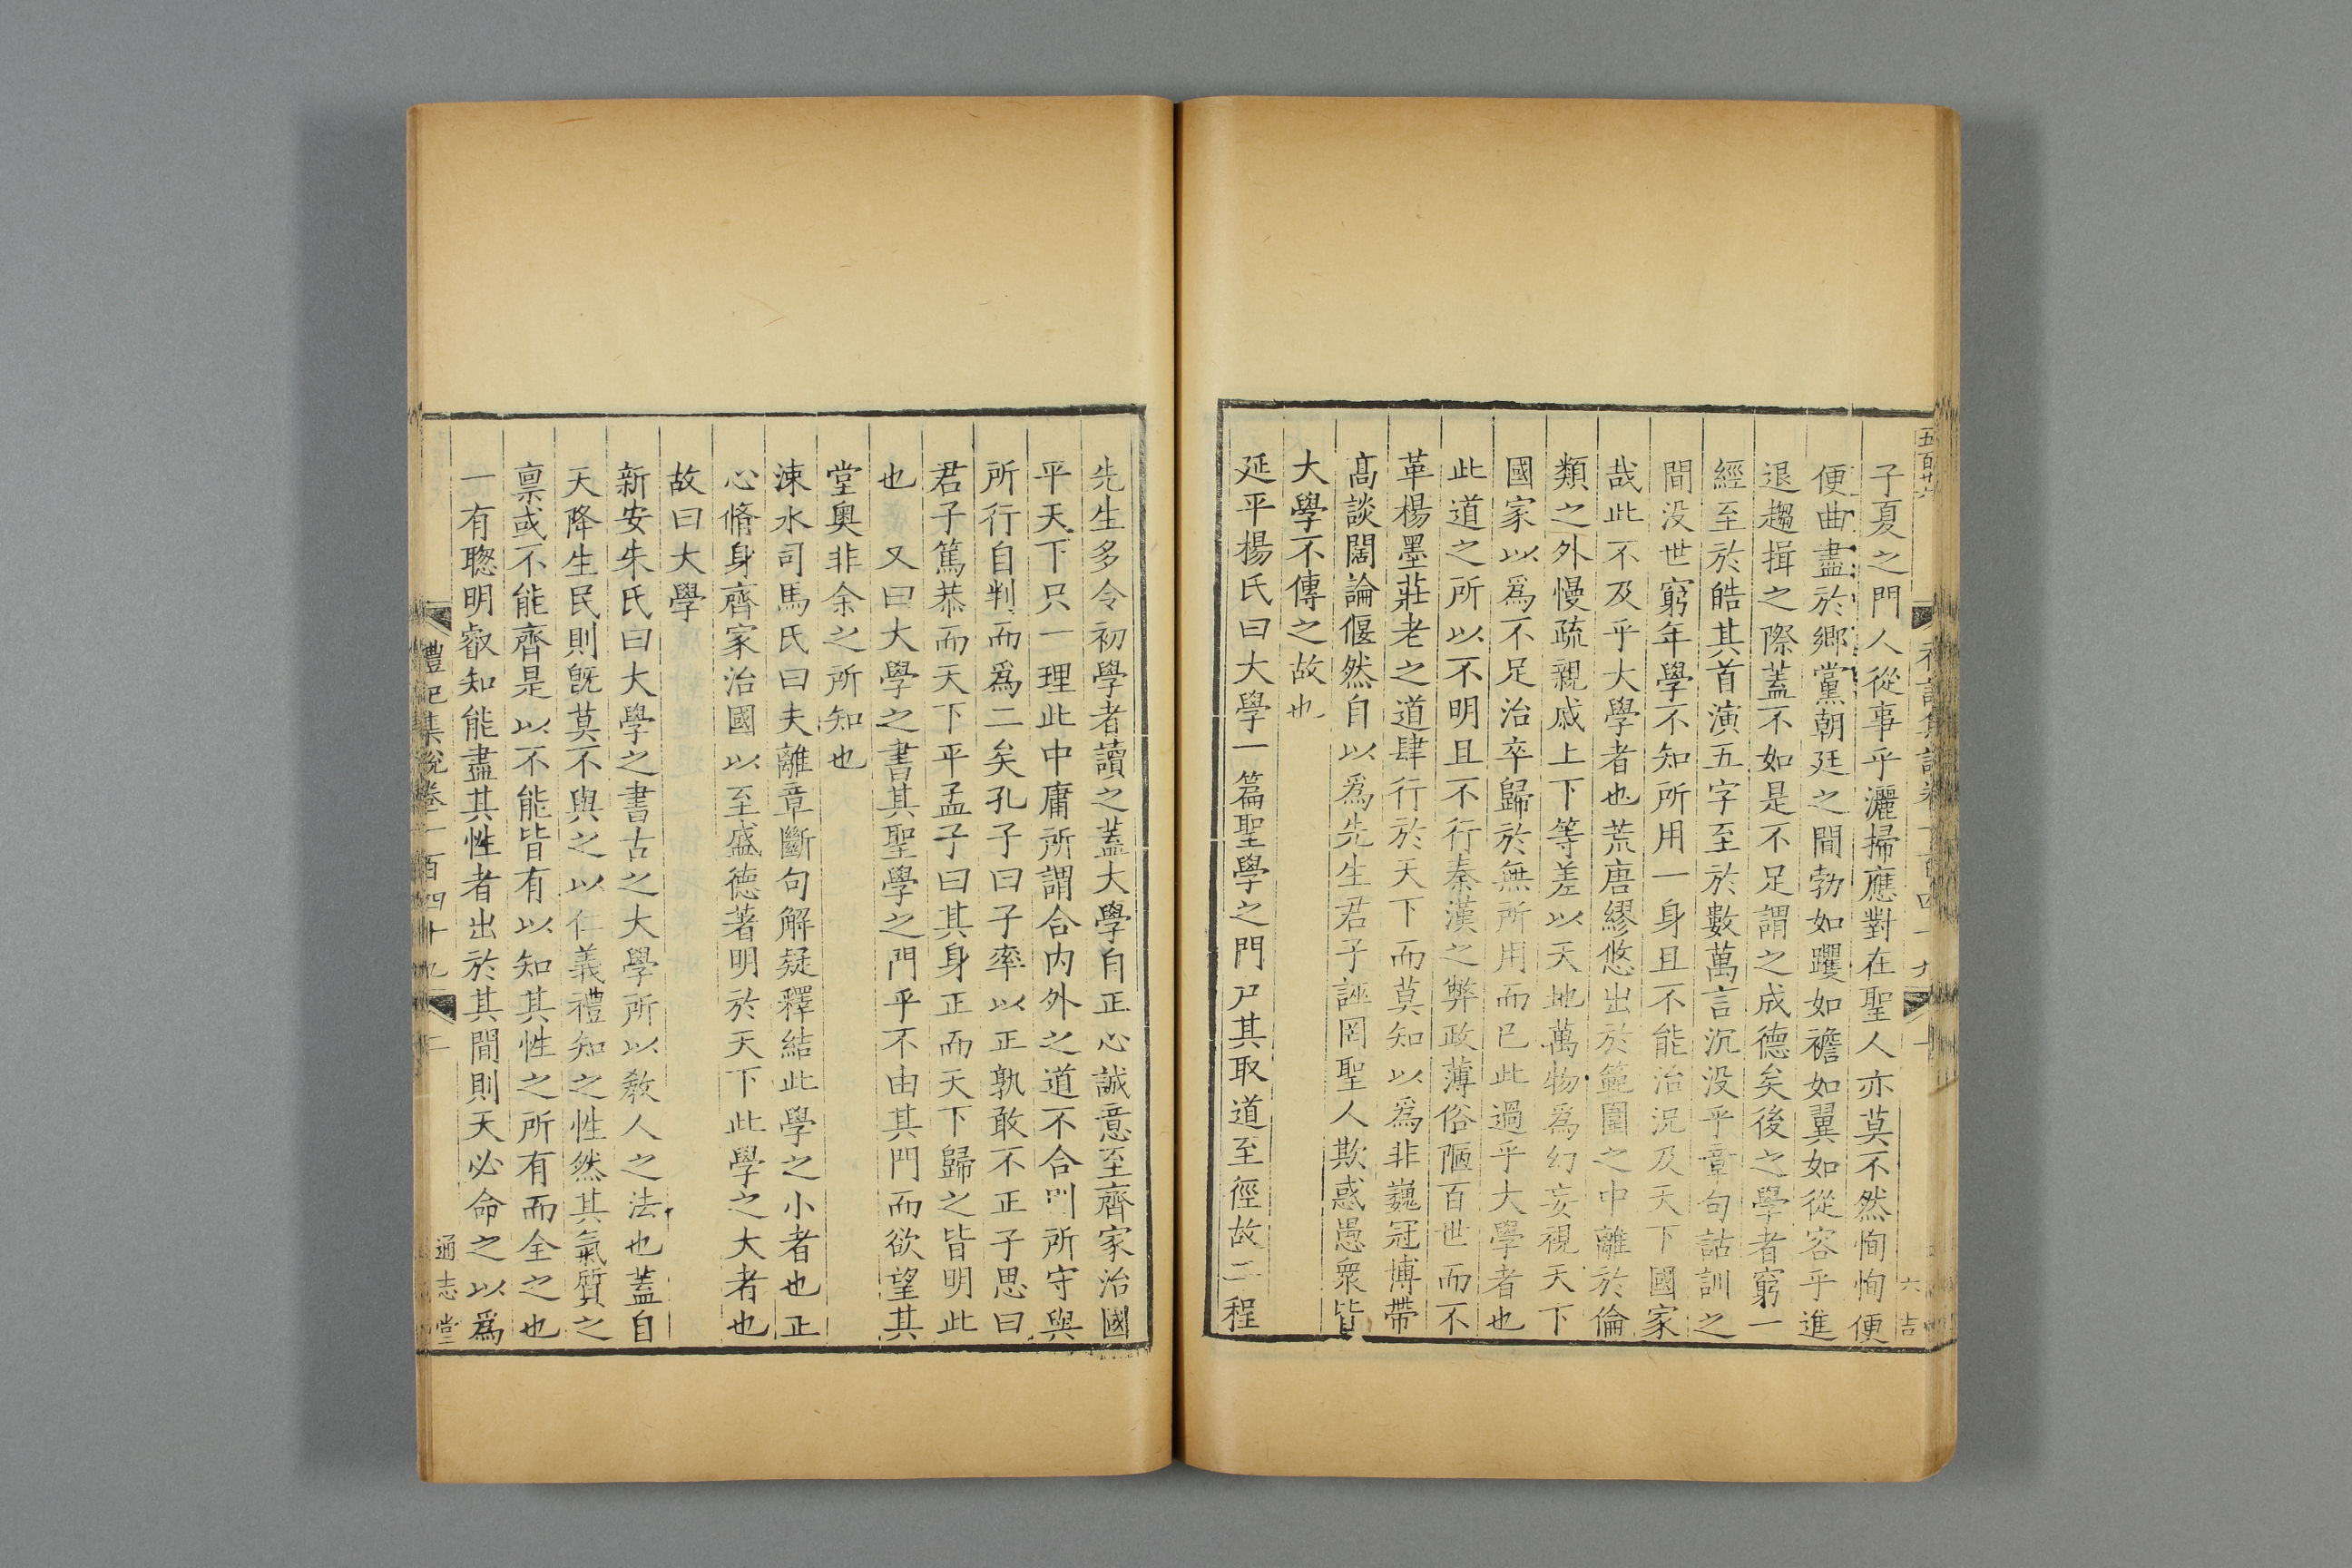 五百廿六
子夏之門人從事乎灑掃應對在聖人亦莫不然恂恂便
便曲盡於鄉黨朝廷之間勃如躩如襜如翼如從容乎進
退趨揖之際蓋不如是不足謂之成德矣後之學者窮一
經至於皓其首演五字至於數萬言沉没乎章句詁訓之
間没世窮年學不知所用一身且不能治況及天下國家
哉此不及乎大學者也荒唐繆悠出於範圍之中離於倫
類之外慢疏親戚上下等差以天地萬物爲幻妄視天下
國家以爲不足治卒歸於無所用而已此過乎大學者也
此道之所以不明且不行秦漢之弊政薄俗陋百世而不
革楊墨莊老之道肆行於天下而莫知以爲非巍冠博帶
高談闊論偃然自以爲先生君子誣罔聖人欺惑愚衆皆
大學不傳之故也
延平楊氏曰大學一篇聖學之門戸其取道至徑故二程
先生多令初學者讀之蓋大學自正心誠意至齊家治國
平天下只一理此中庸所謂合内外之道不合則所守與
所行自判而爲二矣孔子曰子率以正孰敢不正子思曰
君子篤恭而天下平孟子曰其身正而天下歸之皆明此
也 又曰大學之書其聖學之門乎不由其門而欲望其
堂奥非余之所知也
涑水司馬氏曰夫離章斷句解疑釋結此學之小者也正
心脩身齊家治國以至盛德著明於天下此學之大者也
故曰大學
新安朱氏曰大學之書古之大學所以敎人之法也蓋自
天降生民則旣莫不與之以仁義禮知之性然其氣質之
禀或不能齊是以不能皆有以知其性之所有而全之也
一有聰明叡知能盡其性者出於其間則天必命之以爲
禮記集說卷一百四十九 二 通志堂